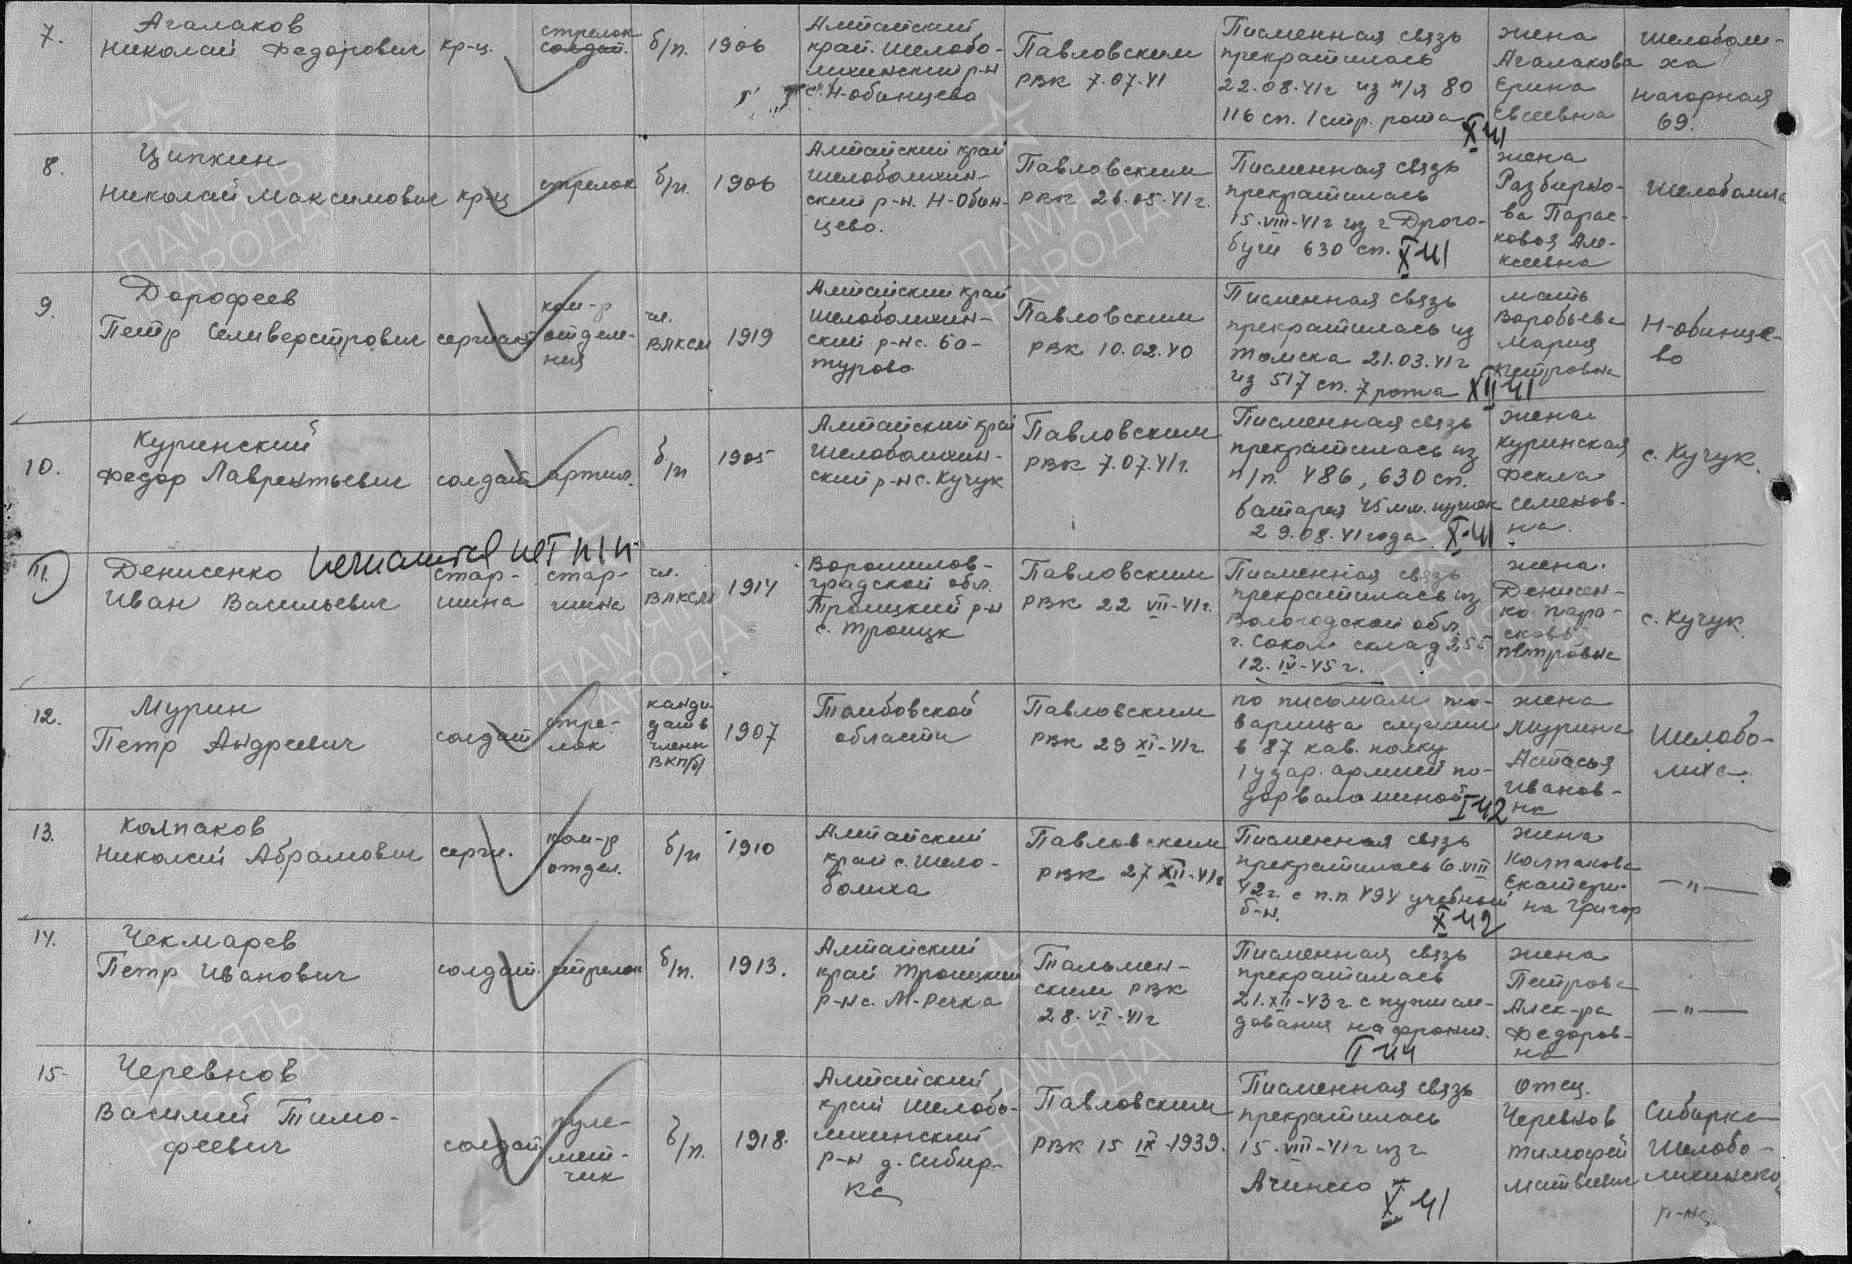 7.
Агалаков
Николай Федорович
кр-ц.
стрелок
солдат.
б/п.
1906
Алтайский
край. Шелобо-
лихинский р-н
с. Н-обинцево
Павловским
РВК 7.07.41
Писменная связь
прекратилась
22.08.41г из п/я 80
116 сп. 1 стр. рота
X 41
жена
Агалакова
Ерина
Евсеевна
Шелоболи-
ха
Нагорная
69.
8.
Ципкин
Николай Максимович
кр-ц
стрелок
б/п.
1906
Алтайский край
Шелоболихин-
ский р-н. Н-Обин-
цево.
Павловским
РВК 26.05.41г.
Писменная связь
прекратилась
15.VIII-41г из г Дрого-
бужи 630 сп.
X 41
жена
Разбирко-
ва Парас-
ковья Але-
ксеевна
Шелоболиха
9.
Дорофеев
Петр Селиверстрович
сержант
ком-р
отделе-
ния
чл.
ВЛКСМ
1919
Алтайский край
Шелоболихин-
ский р-н с. Ба-
турово
Павловским
РВК 10.02.40
Писменная связь
прекратилась из
Томска 21.03.41г
из 517 сп. 7 рота
XII 41
мать
Воробьева
Мария
Петровна
Н-обинце-
во
10.
Куринский
Федор Лаврентьевич
солдат
артил.
б/п
1905
Алтайский край
Шелоболихин-
ский р-н с. Кучук
Павловским
РВК 7.07.41г.
Писменная связь
прекратилась из
п/п. 486, 630 сп.
батарея 45 мм. пушек
29.08.41 года
X-41
жена
Куринская
Фекла
Семенов-
на.
с. Кучук.
11.
Денисенко
Иван Васильевич
стар-
шина
стар-
шина
чл.
ВЛКСМ
1914
Ворошилов-
градской обл.
Троицкий р-н
с. Троицк
Павловским
РВК 22 VII-41г.
Писменная связь
прекратилась из
Вологодской обл.
г. Сокол склад 255
12.IV-45г.
жена.
Денисен-
ко Пара-
сковья
Петровна
с. Кучук
12.
Мурин
Петр Андреевич
солдат
стре-
лок
канди-
дат в
члены
ВКП(б)
1907
Тамбовской
области
Павловским
РВК 29 XI-41г
по письмам то-
варища служил
в 87 кав. полку
1 удар. армии по-
дорвало миной
I 42
жена
Мурина
Астасья
Иванов-
на
Шелобо-
лиха.
13.
Колпаков
Николай Абрамович
серж.
ком-р
отдел.
б/п
1910
Алтайский
край с. Шело-
болиха
Павловским
РВК 27 XII-41г
Писменная связь
прекратилась 6.VIII
42г. с п.п 494 учебный
б-н.
X 42
жена
Колпакова
Екатери-
на Григор
—"—
14.
Чекмарев
Петр Иванович
солдат.
стрелок
б/п.
1913.
Алтайский
край Троицкий
р-н с. М-речка
Тальмен-
ским РВК
28.VI-41г
Писменная связь
прекратилась
21.XII-43г с пути сле-
дования на фронт.
II 44
жена
Петрова
Алек-ра
Федоров-
на
—"—
15
Черевков
Василий Тимо-
феевич
солдат
пуле-
мет-
чик
б/п.
1918.
Алтайский
край Шелобо-
лихинский
р-н д. Сибир-
ка
Павловским
РВК 15 IX-1939.
Писменная связь
прекратилась
15.VIII-41г из г
Ачинско
X 41
Отец.
Черевков
Тимофей
Матвеевич
Сибирка
Шелобо-
лихинско
р-на
ПАМЯТЬ
НАРОДА